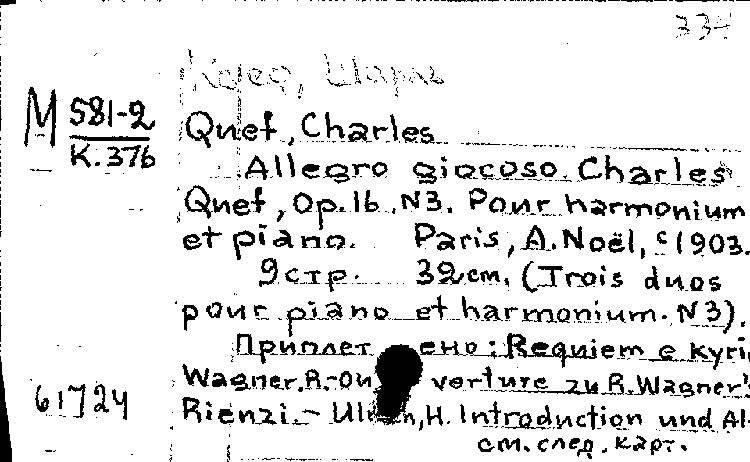 334
Куеф, Шарль
М 581-2
К. 376
Quef, Charles
Allegro giocoso. Charles
Quef, Op. 16. N3. Pour harmonium
et piano. Paris, A. Noël, c1903.
9 стр. 32 cm. (Trois duos
pour piano et harmonium. N3).
Приплет ено: Requiem e Kyri
Wagner. R.- Ou verture zu R. Wagner's
61724
Rienzi.- Ul n, H. Introduction und Al-
см. след. карт.